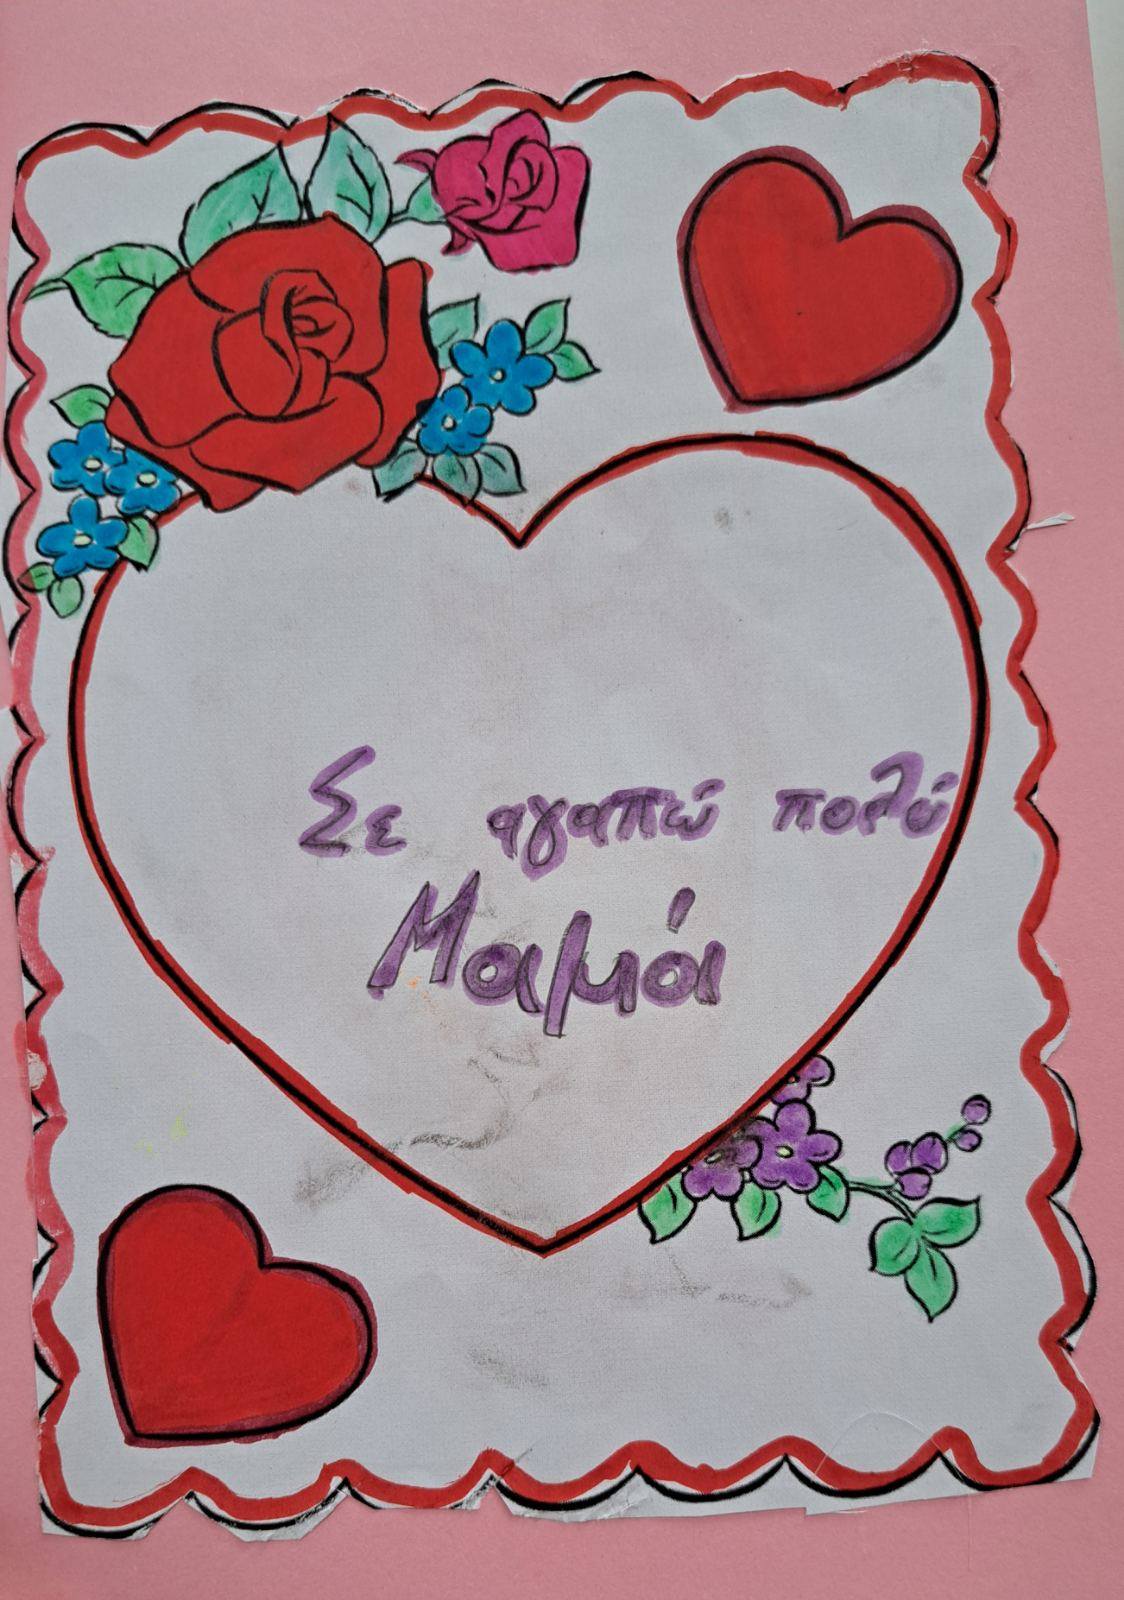 Σε αγαπώ πολύ
Μαμά